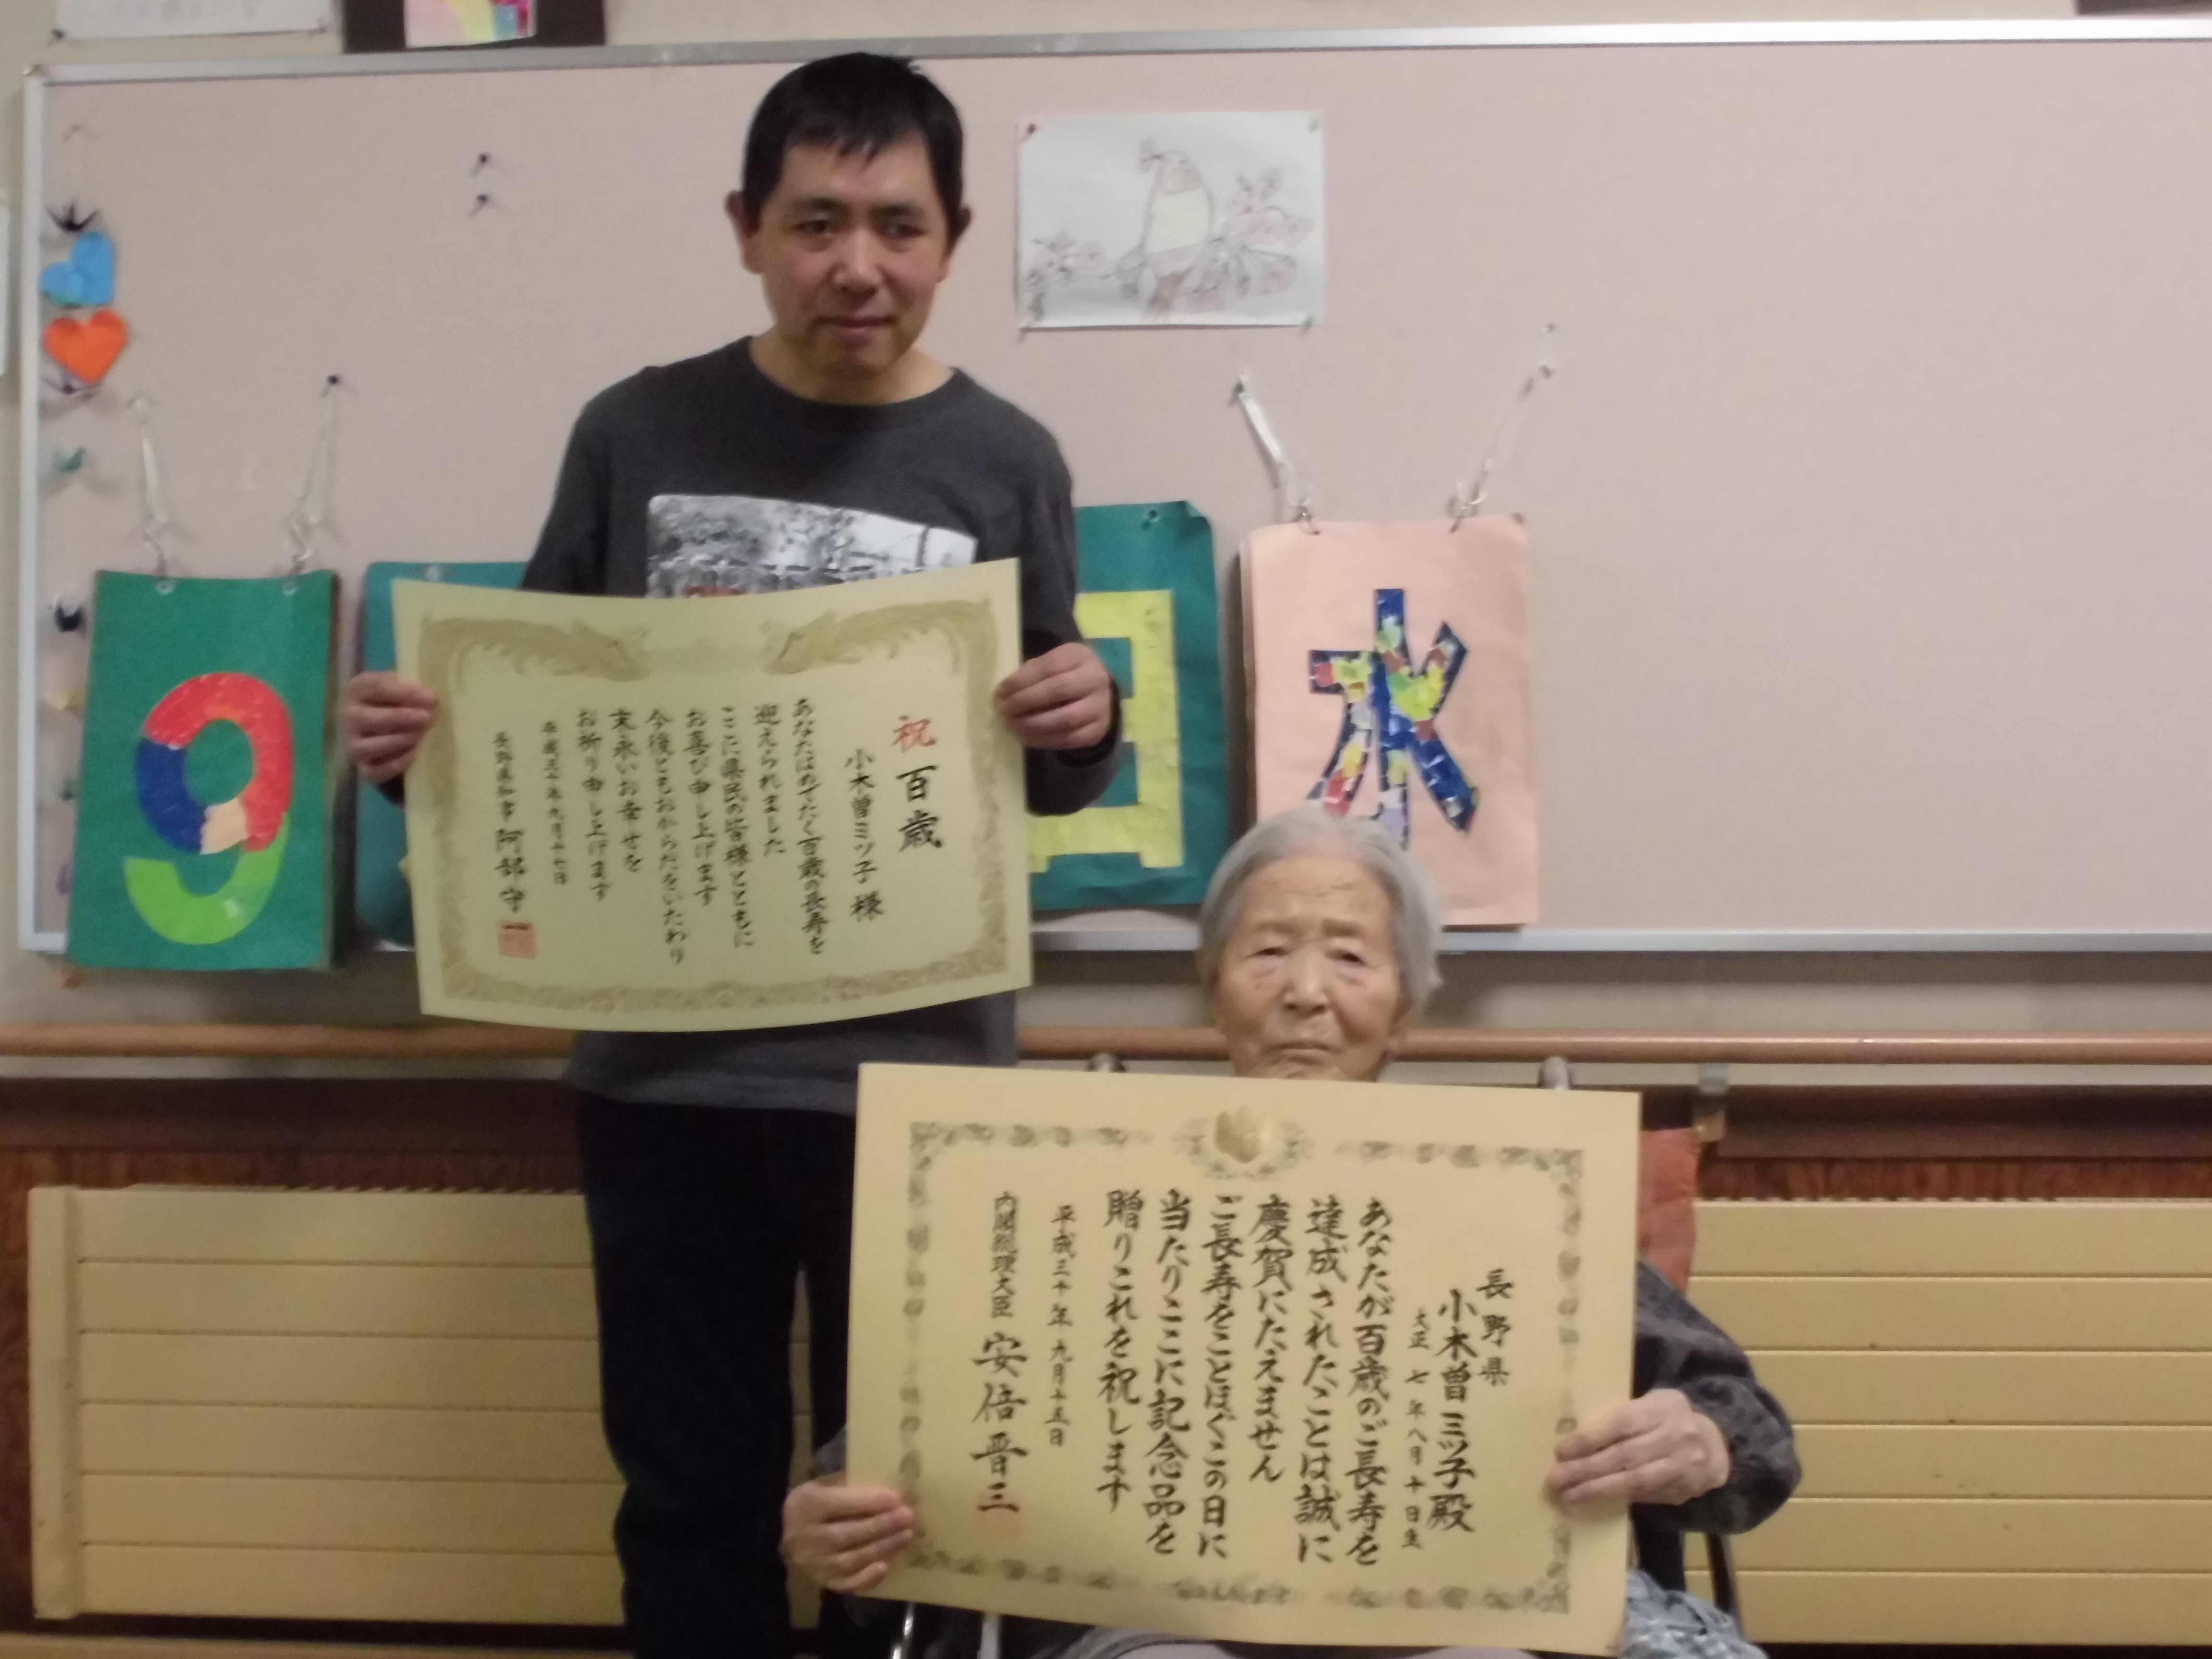 9
日
水
祝 百歳
小木曽ミツ子 様
あなたはめでたく百歳の長寿を
迎えられました
ここに県民の皆様とともに
お喜び申し上げます
今後ともおからだをいたわり
末永いお幸せを
お祈り申し上げます
平成三十年九月十七日
長野県知事 阿部守一
長野県
小木曽ミツ子殿
大正 七年八月十日生
あなたが百歳のご長寿を
達成されたことは誠に
慶賀にたえません
ご長寿をことほぐこの日に
当たりここに記念品を
贈りこれを祝します
平成三十年 九月十五日
内閣総理大臣 安倍晋三